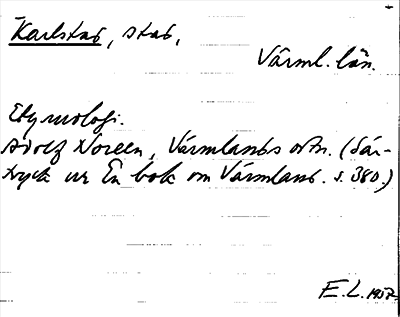 Karlstad, stad,
Värml. län.
Etymologi.
Adolf Noreen, Värmlands ortn. (Sär-
tryck ur En bok om Värmland. s. 380.)
E. L. 1937